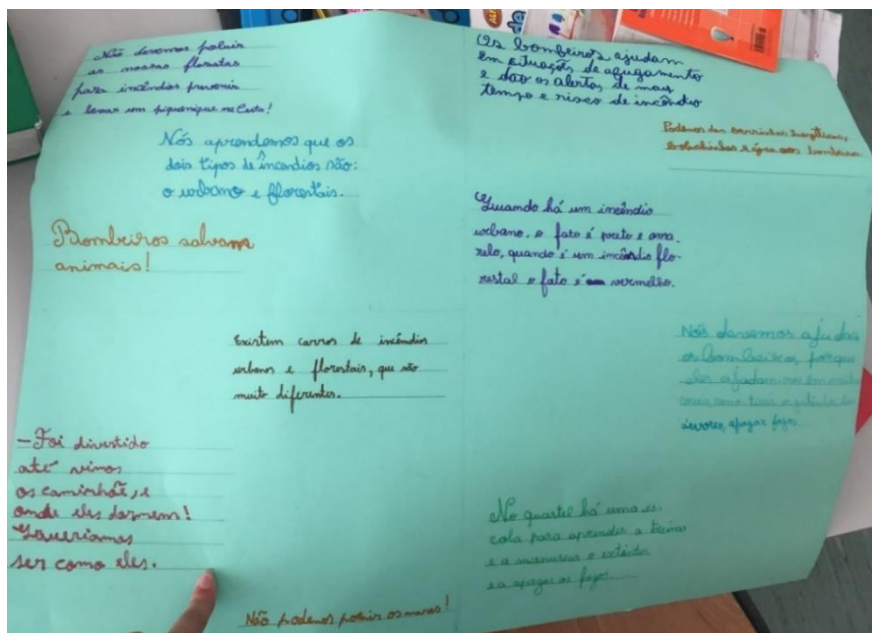 Não devemos poluir
as nossas florestas
para incêndios prevenir
e levar um piquenique na Cesta!
Nós aprendemos que os
dois tipos de incêndios são:
o urbano e florestais.
Bombeiros salvam
animais!
Existem carros de incêndios
urbanos e florestais, que são
muito diferentes.
-Foi divertido
até vimos
os caminhoẽ, e
onde eles dormem!
Queriamos
ser como eles.
Não podemos poluir os mares!
Os bombeiros ajudam
em situaçoẽs de afugamento
e dão os alertas de mau
tempo e risco de incêndio
Podemos dar barrinhas energéticas,
bolachinhas e água aos bombeiros
Quando há um incêndio
urbano. o fato é preto e ama.
relo, quando é um incêndio flo-
restal o fato é vermelho.
Nós devemos ajudar
os bombeiros, porque
eles ajudam-nos em muitas
coisas como tirar o gatinho das
árvores, apagar fogos.
No quartel há uma es-
cola para aprender a treinar
e a manusear o extintor
e a apagar os fogos.